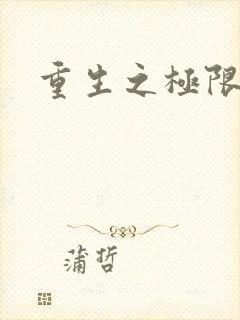 重生之極限
蒲哲